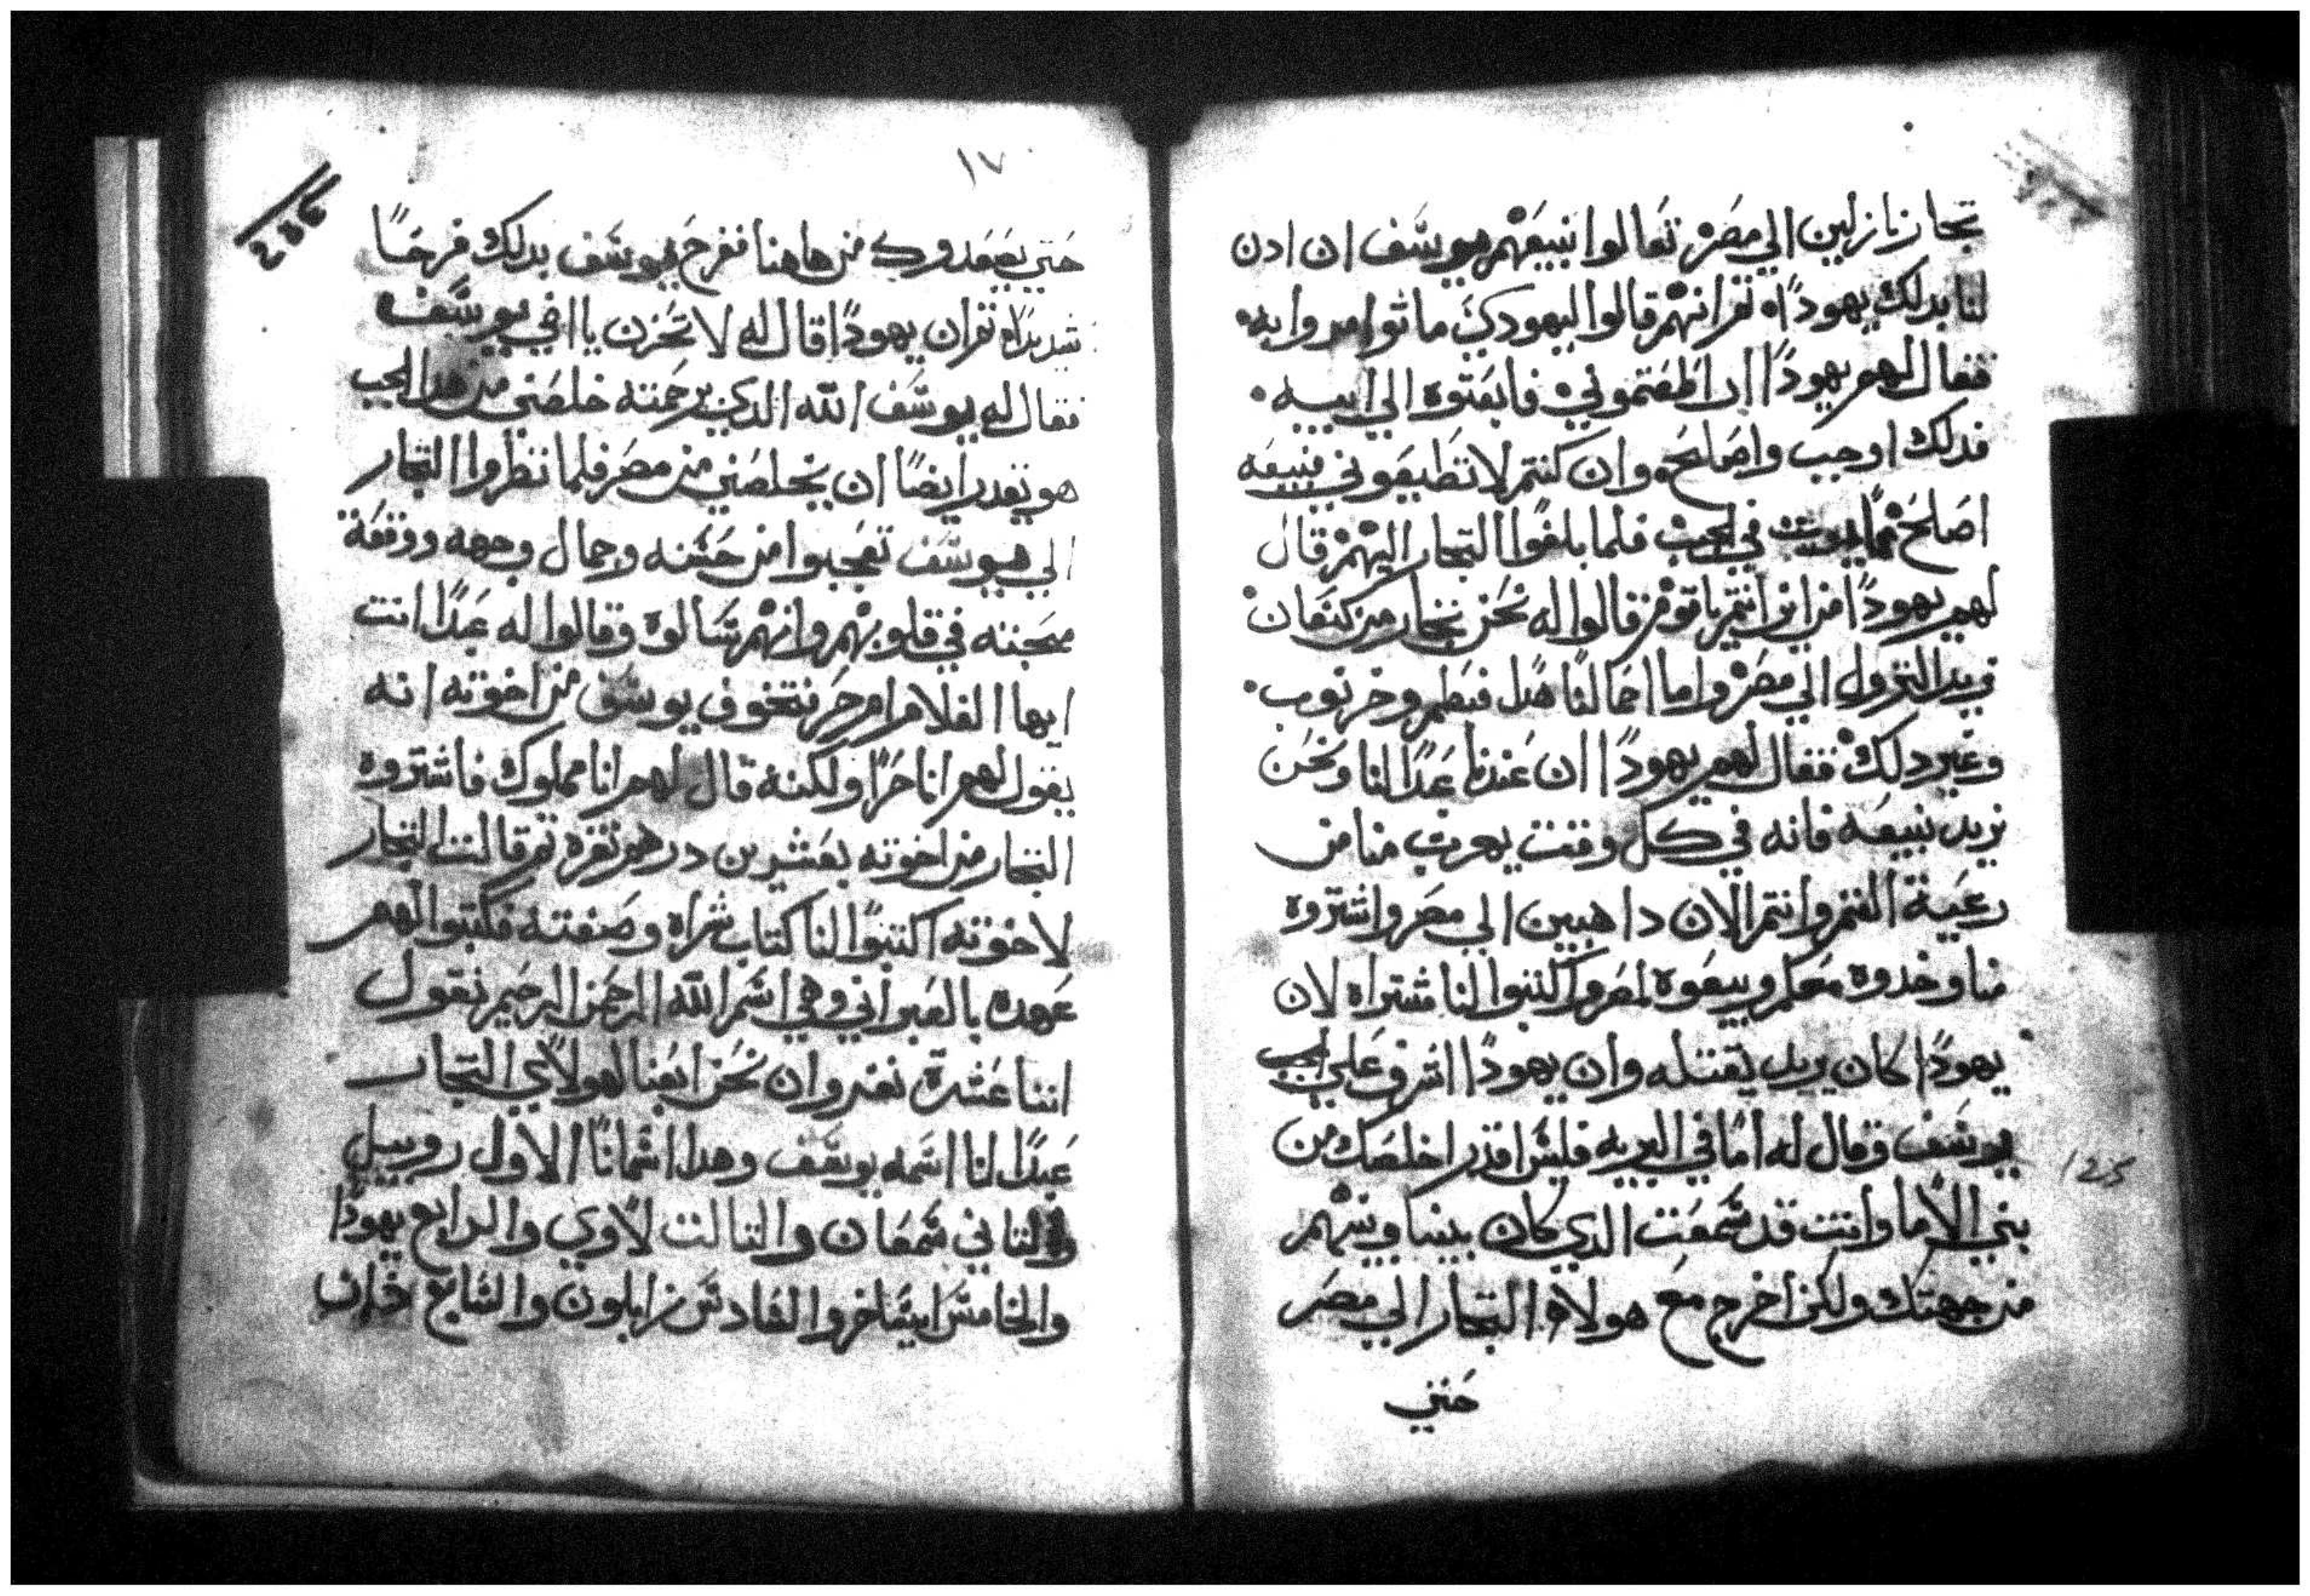 تجار نازلين الي مصر تعالوا نبيعهم يوسف ان ادن
لنا بدلك يهودا ثم انهم قالوا ليهودي ماتوامروا به
فقال لهم يهودا ان اطعتموني فابعتوه الي ابيه
فدلك اوجب واصلح وان كنتم لا تطيعوني فبيعه
اصلح مما يموت في الجب فلما بلغوا التجار اليهم قال
لهم يهودا من اين انتم يا قوم قالوا له نحن تجار من كنعان
نريد النزول الي مصر واما احمالنا هدل فبطم وخرنوب
وغير دلك فقال لهم يهودا ان عندنا عبدا لنا ونحن
نريد نبيعه فانه في كل وقت يهرب منا من
رعية الغنم وانتم الان داهبين الي مصر واشتروه
منا وخدوه معكم وبيعوه لمصر واكتبوا لنا مشتراه لان
يهودا كان يريد يقتله وان يهودا اشرف علي الجب
يوسف وقال له اما في البريه فليس اقدر اخلصك من
بني الاما وانت قد سمعت الدي كان بينا وبينهم
من جهتك ولكن اخرج مع هولاء التجار الي مصر
حتي
١٧
حتي يصعدوك من هاهنا ففرح يوسف بدلك فرحا
شديدا ثم ان يهودا قال له لا تحزن يا اخي يوسف
فقال له يوسف الله الدي برحمته خلصني من هدا الجب
هو يقدر ايضا ان يخلصني من مصر فلما نظروا التجار
الي يوسف تعجبوا من حسنه وجمال وجهه ووقعة
محبته في قلوبهم وانهم سالوه وقالوا له عبدا انت
ايها الغلام ام حر فتخوف يوسف من اخوته انه
يقول لهم انا حرا ولكنه قال لهم انا مملوك فاشتروه
التجار من اخوته بعشرين درهم نقره ثم قالت التجار
لاخوته اكتبوا لنا كتاب شراه وصفته فكتبوا لهم
عهده بالعبراني وهي اسم الله الرحمن الرحيم نقول
اننا عشرة نفر وان نحن ابعنا لهولاي التجار
عبدا لنا اسمه يوسف وهدا اسمانا الاول روبيل
والتاني شمعان والتالت لاوي والرابع يهودا
والخامس ايساخر والسادس زابلون والسابع دان